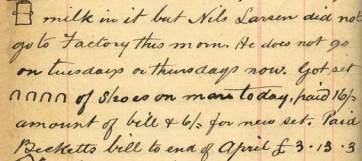 milk in it but Nils Larsen did not
go to Factory this morn. He does not go
on tuesdays or thursdays now. Got set
of Shoes on mare today, paid 16/2
amount of bill & 6/- for new set. Paid
Becketts bill to end of April £3.13.3